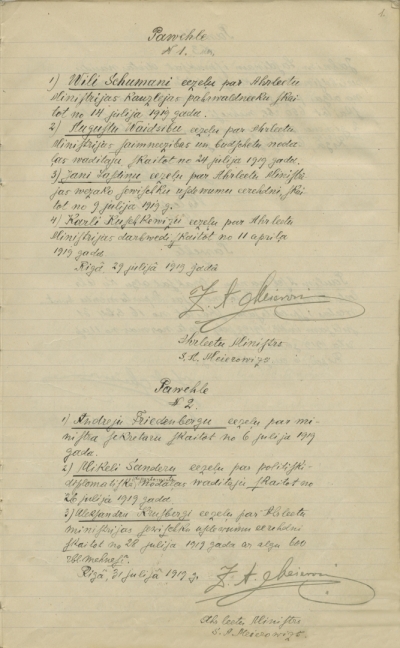 Pawehle
№ 1.
1) Wili Schumani eezeļu par Ahrleetu
Ministrijas Kanzlejas pahrwaldneeku skai-
tot no 14 julijā 1919 gadu.
2) Augustu Kaidzibu eezeļu par Ahrleetu
Ministrijas saimneezibas un budscheta noda-
ļas waditaju skaitot no 24 julijā 1919 gadu.
3) Jani eezeļu par Ahrleetu Ministri-
jas wezako sewischķu usdewumu eerehdni, skai-
tot no 9 julijā 1919 g.
4) Karli Kuschkewizu eezeļu par Ahrleetu
Ministrijas darbwedi, skaitot no 11 aprilja
1919 gada
Rigā, 29 julijā 1919 gadā
Z. A. Meierovics
Ahrleetu Ministrs
S. A. Meierowizs
Pawehle
№ 2.
1) Andreju Friedenbergu eezeļu par mi-
nistra sekretaru skaitot no 6 julijā 1919
gada.
2) Mikeli Sanderu eezeļu par politiski-
diplomatiskās Nodaļas waditaju skaitot no
28 julijā 1919 gada.
3) Aleksandru eezeļu par Ahrleetu
ministrijas sewischķu usdewumu eerehdni
skaitot no 28 julijā 1919 gada ar algu 600
rbl mehnesī.
Rigā, 31 julijā 1919 g.
Z. A. Meierovics
Ahrleetu Ministrs
S. A. Meierowizs